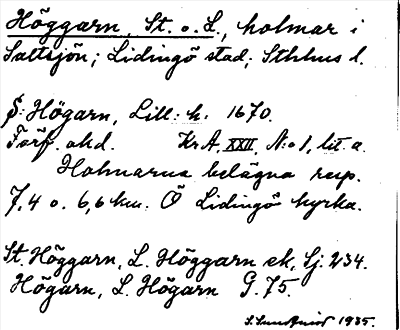 Höggarn, St. o. L., holmar i
Saltsjön; Lidingö stad; Sthlms l.
S: Högarn, Lill: h. 1670.
Förf. okd. Kr A, XXII, N:o 1, lit. a.
Holmarna belägna resp.
7,4 o. 6,6 km. Ö Lidingö kyrka.
St. Höggarn, L. Höggarn ek, Sj. 234.
Högarn, L. Högarn G. 75.
1935.